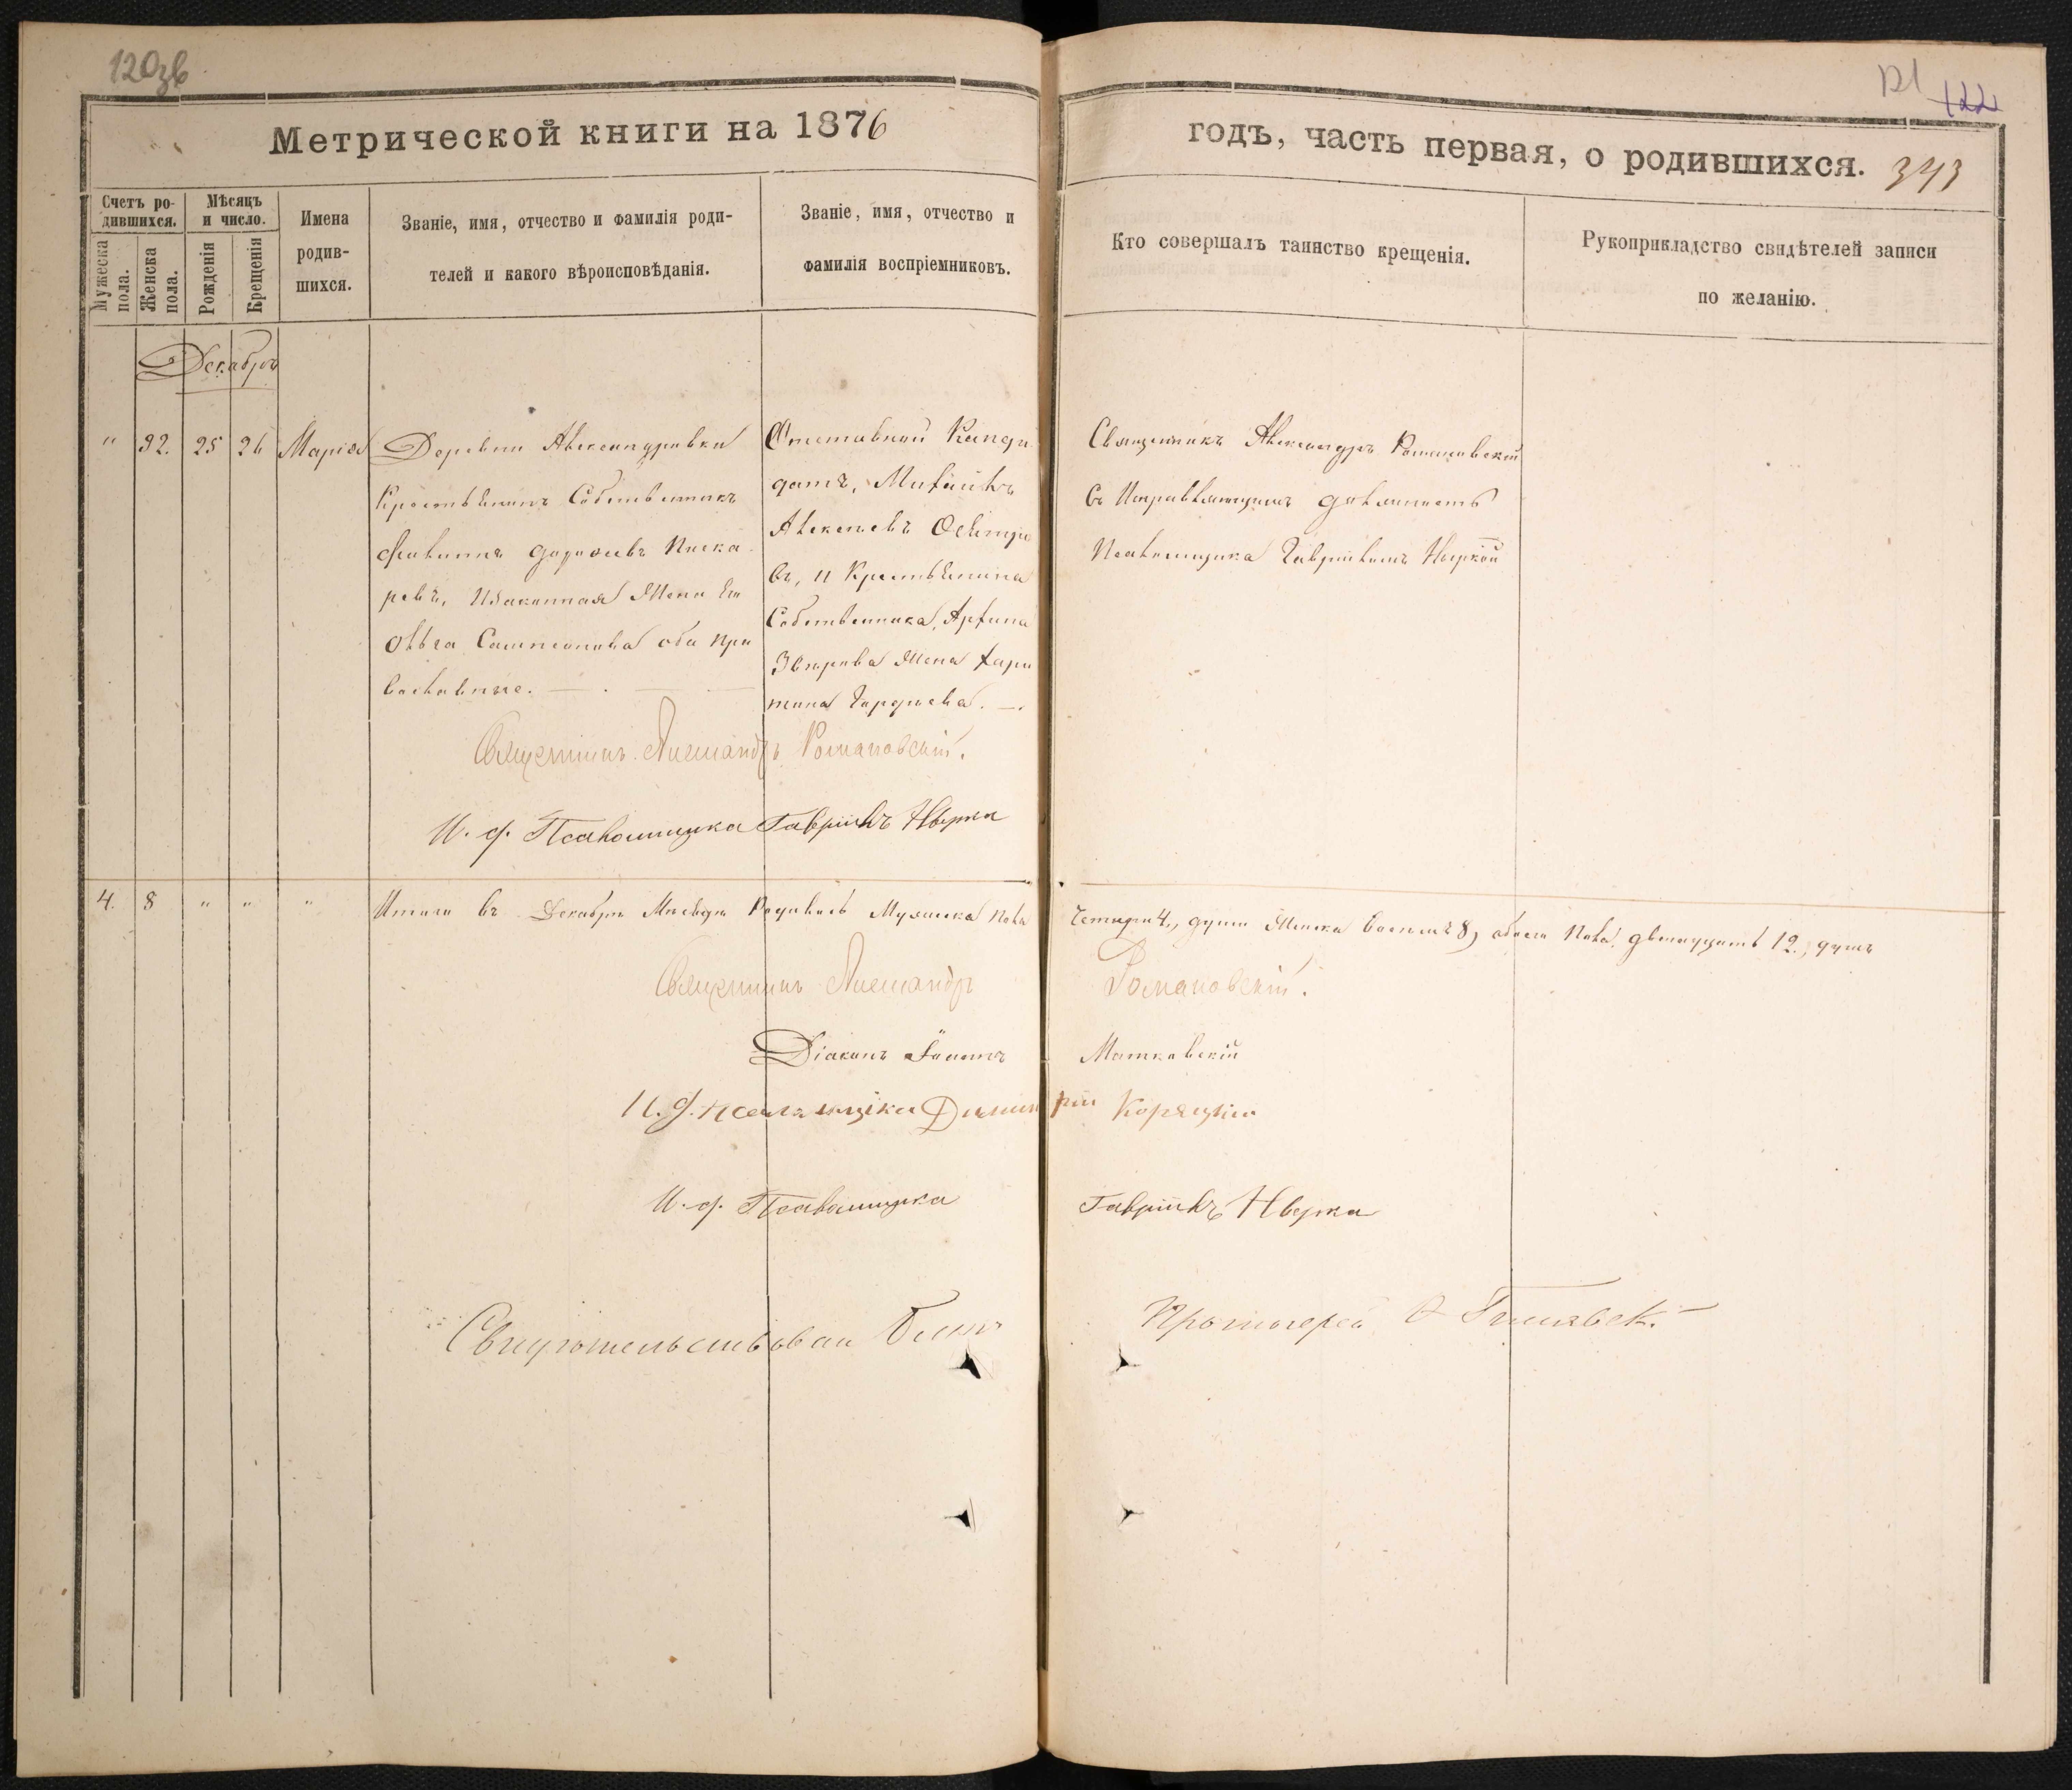 120зв
121
122
Метрической книги на 1876
годъ, часть первая, о родившихся. 343
Счетъ ро-
дившихся.
Мужеска
пола.
Женска
пола.
Мѣсяцъ
и число.
Рожденія
Крещенія
Имена
родив-
шихся.
Званіе, имя, отчество и фамилія роди-
телей и какого вѣроисповѣданія.
Званіе, имя, отчество и
фамилія воспріемниковъ.
Кто совершалъ таинство крещенія.
Рукоприкладство свидѣтелей записи
по желанію.
Декабрь
" 92. 25 26 Марія
Деревни Александровки
Крестьянинъ Собственникъ
реевъ, Изаконная Жена Его
Ольга Сампсонова оба пра
вославные.
Отставной Канди
датъ, Михаилъ
Алексѣевъ
въ, и Крестьянина
Собственника, Архипа
Звѣрева Жена Хари
тина Гордѣева.
Священникъ Александръ Романовскій
съ Исправляющимъ должность
Псаломщика Гавріиломъ
Священникъ Александръ Романовскій.
И. д. Псаломщика Гавріилъ
4. 8 " " " Итого въ Декабрѣ Мѣсяцѣ Родилось Мужеска пола
Четыри 4., души Женска восемь 8, обоего Пола двенадцать 12., душъ
Священникъ Александръ Романовскій.
Діаконъ Іоаннъ Матковскій
И. д. псаломщика Димитрій Корецкій
И. д. Псаломщика Гавріилъ
Свидѣтельствовалъ Благ.
Протоіерей